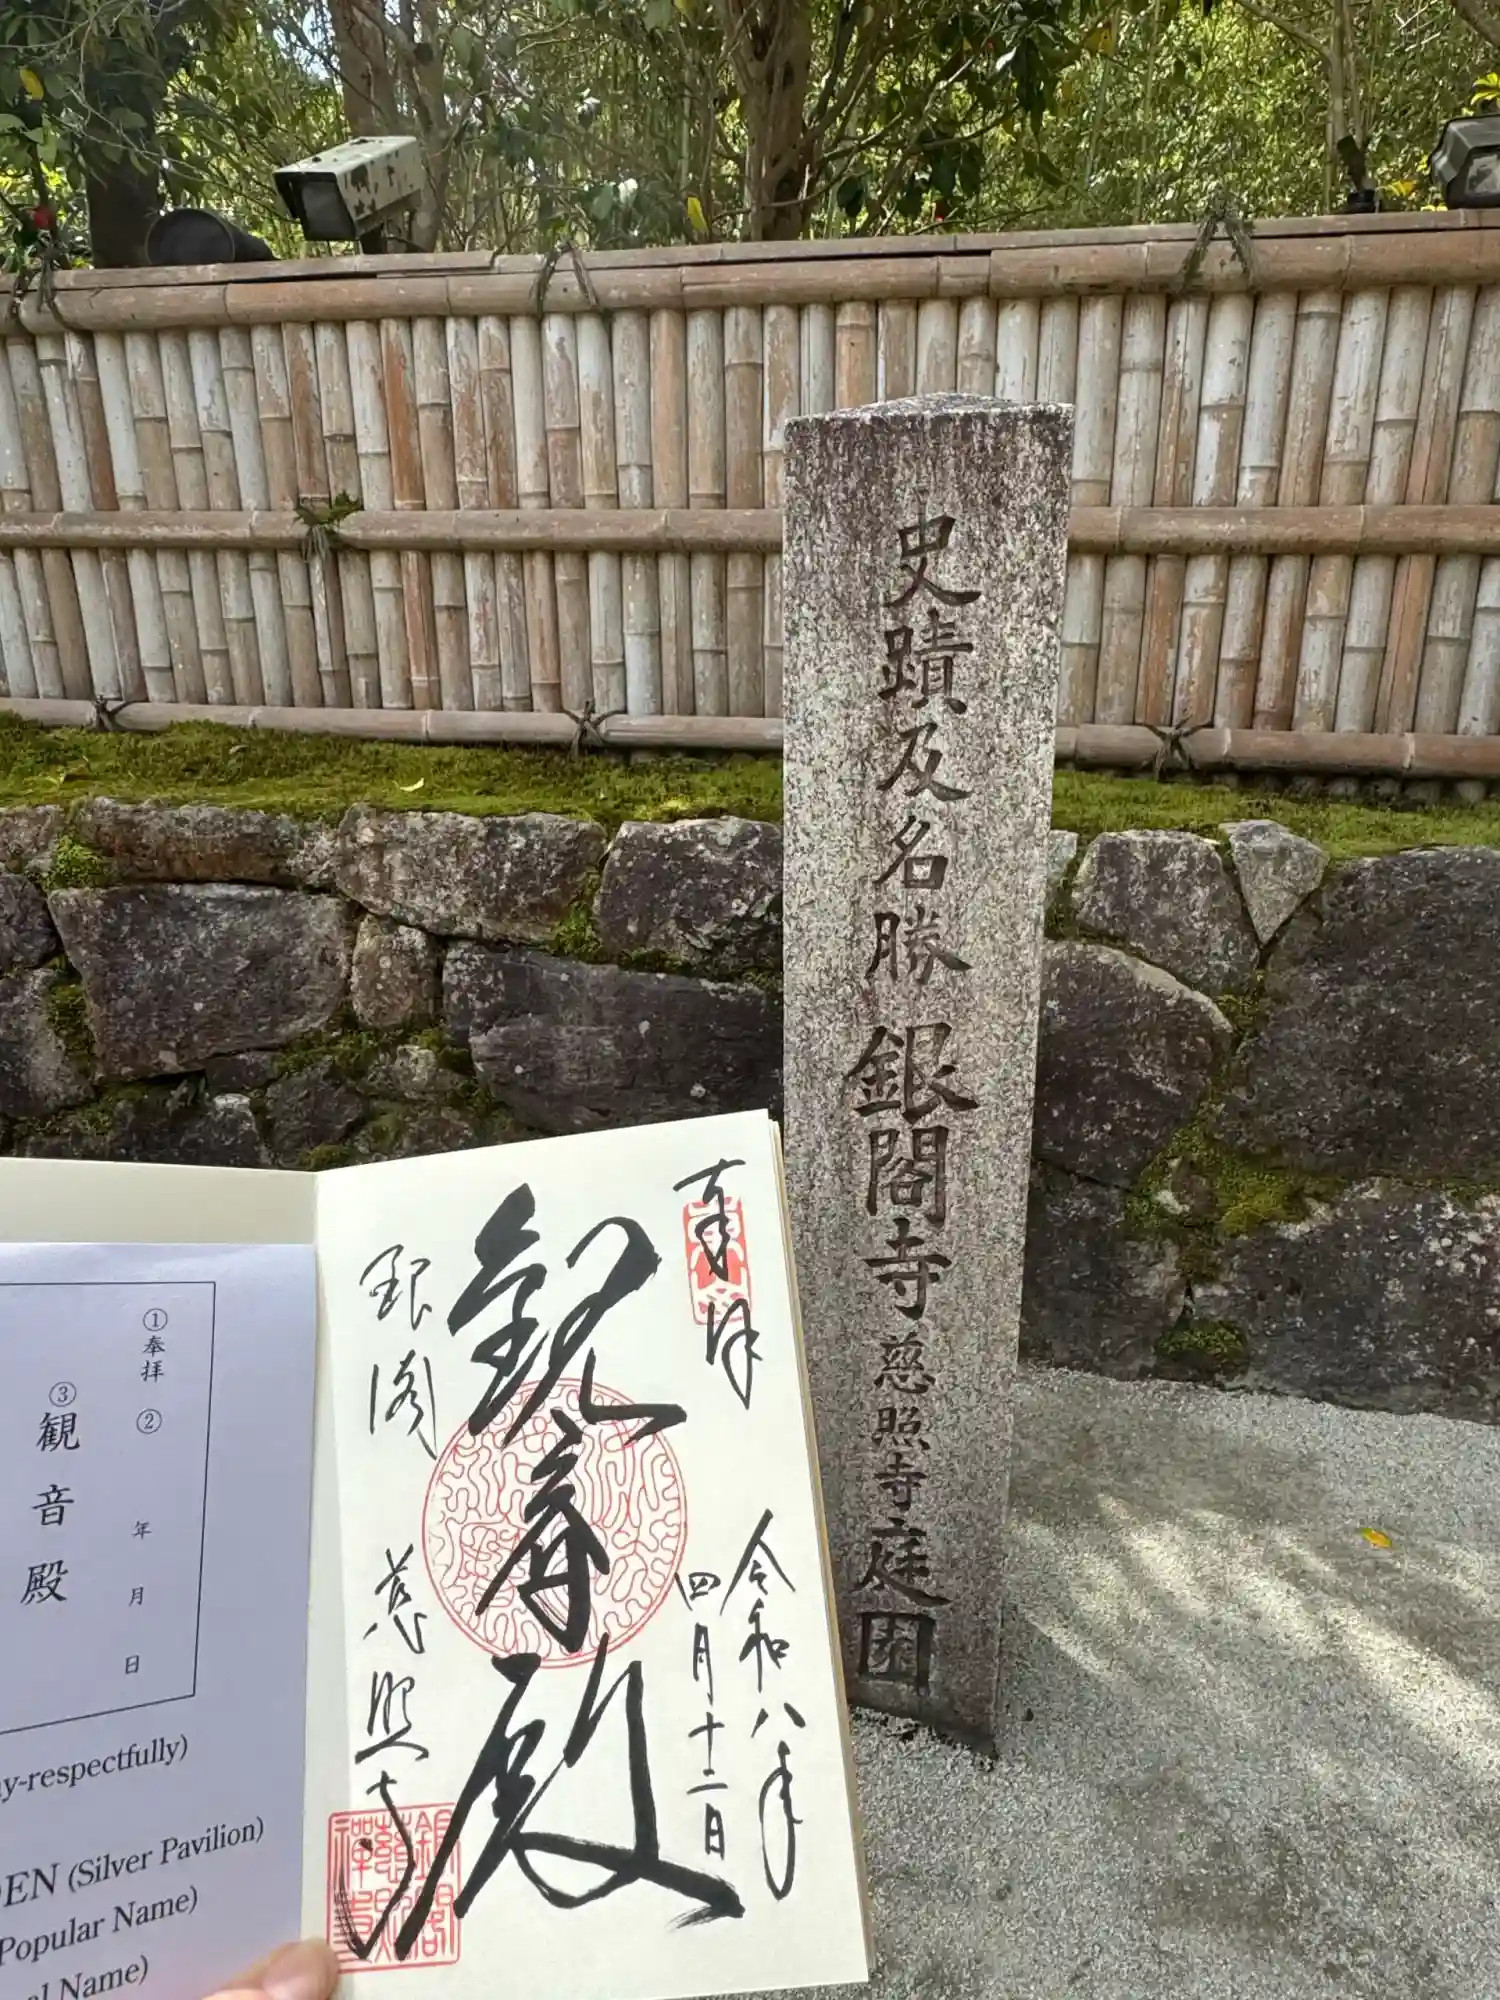 史蹟及名勝 銀閣寺 慈照寺 庭園
奉拝
令和八年
四月十二日
観音殿
銀閣
慈照寺
①奉拝 ② 年 月 日
③観音殿
y-respectfully)
EN (Silver Pavilion)
Popular Name)
al Name)